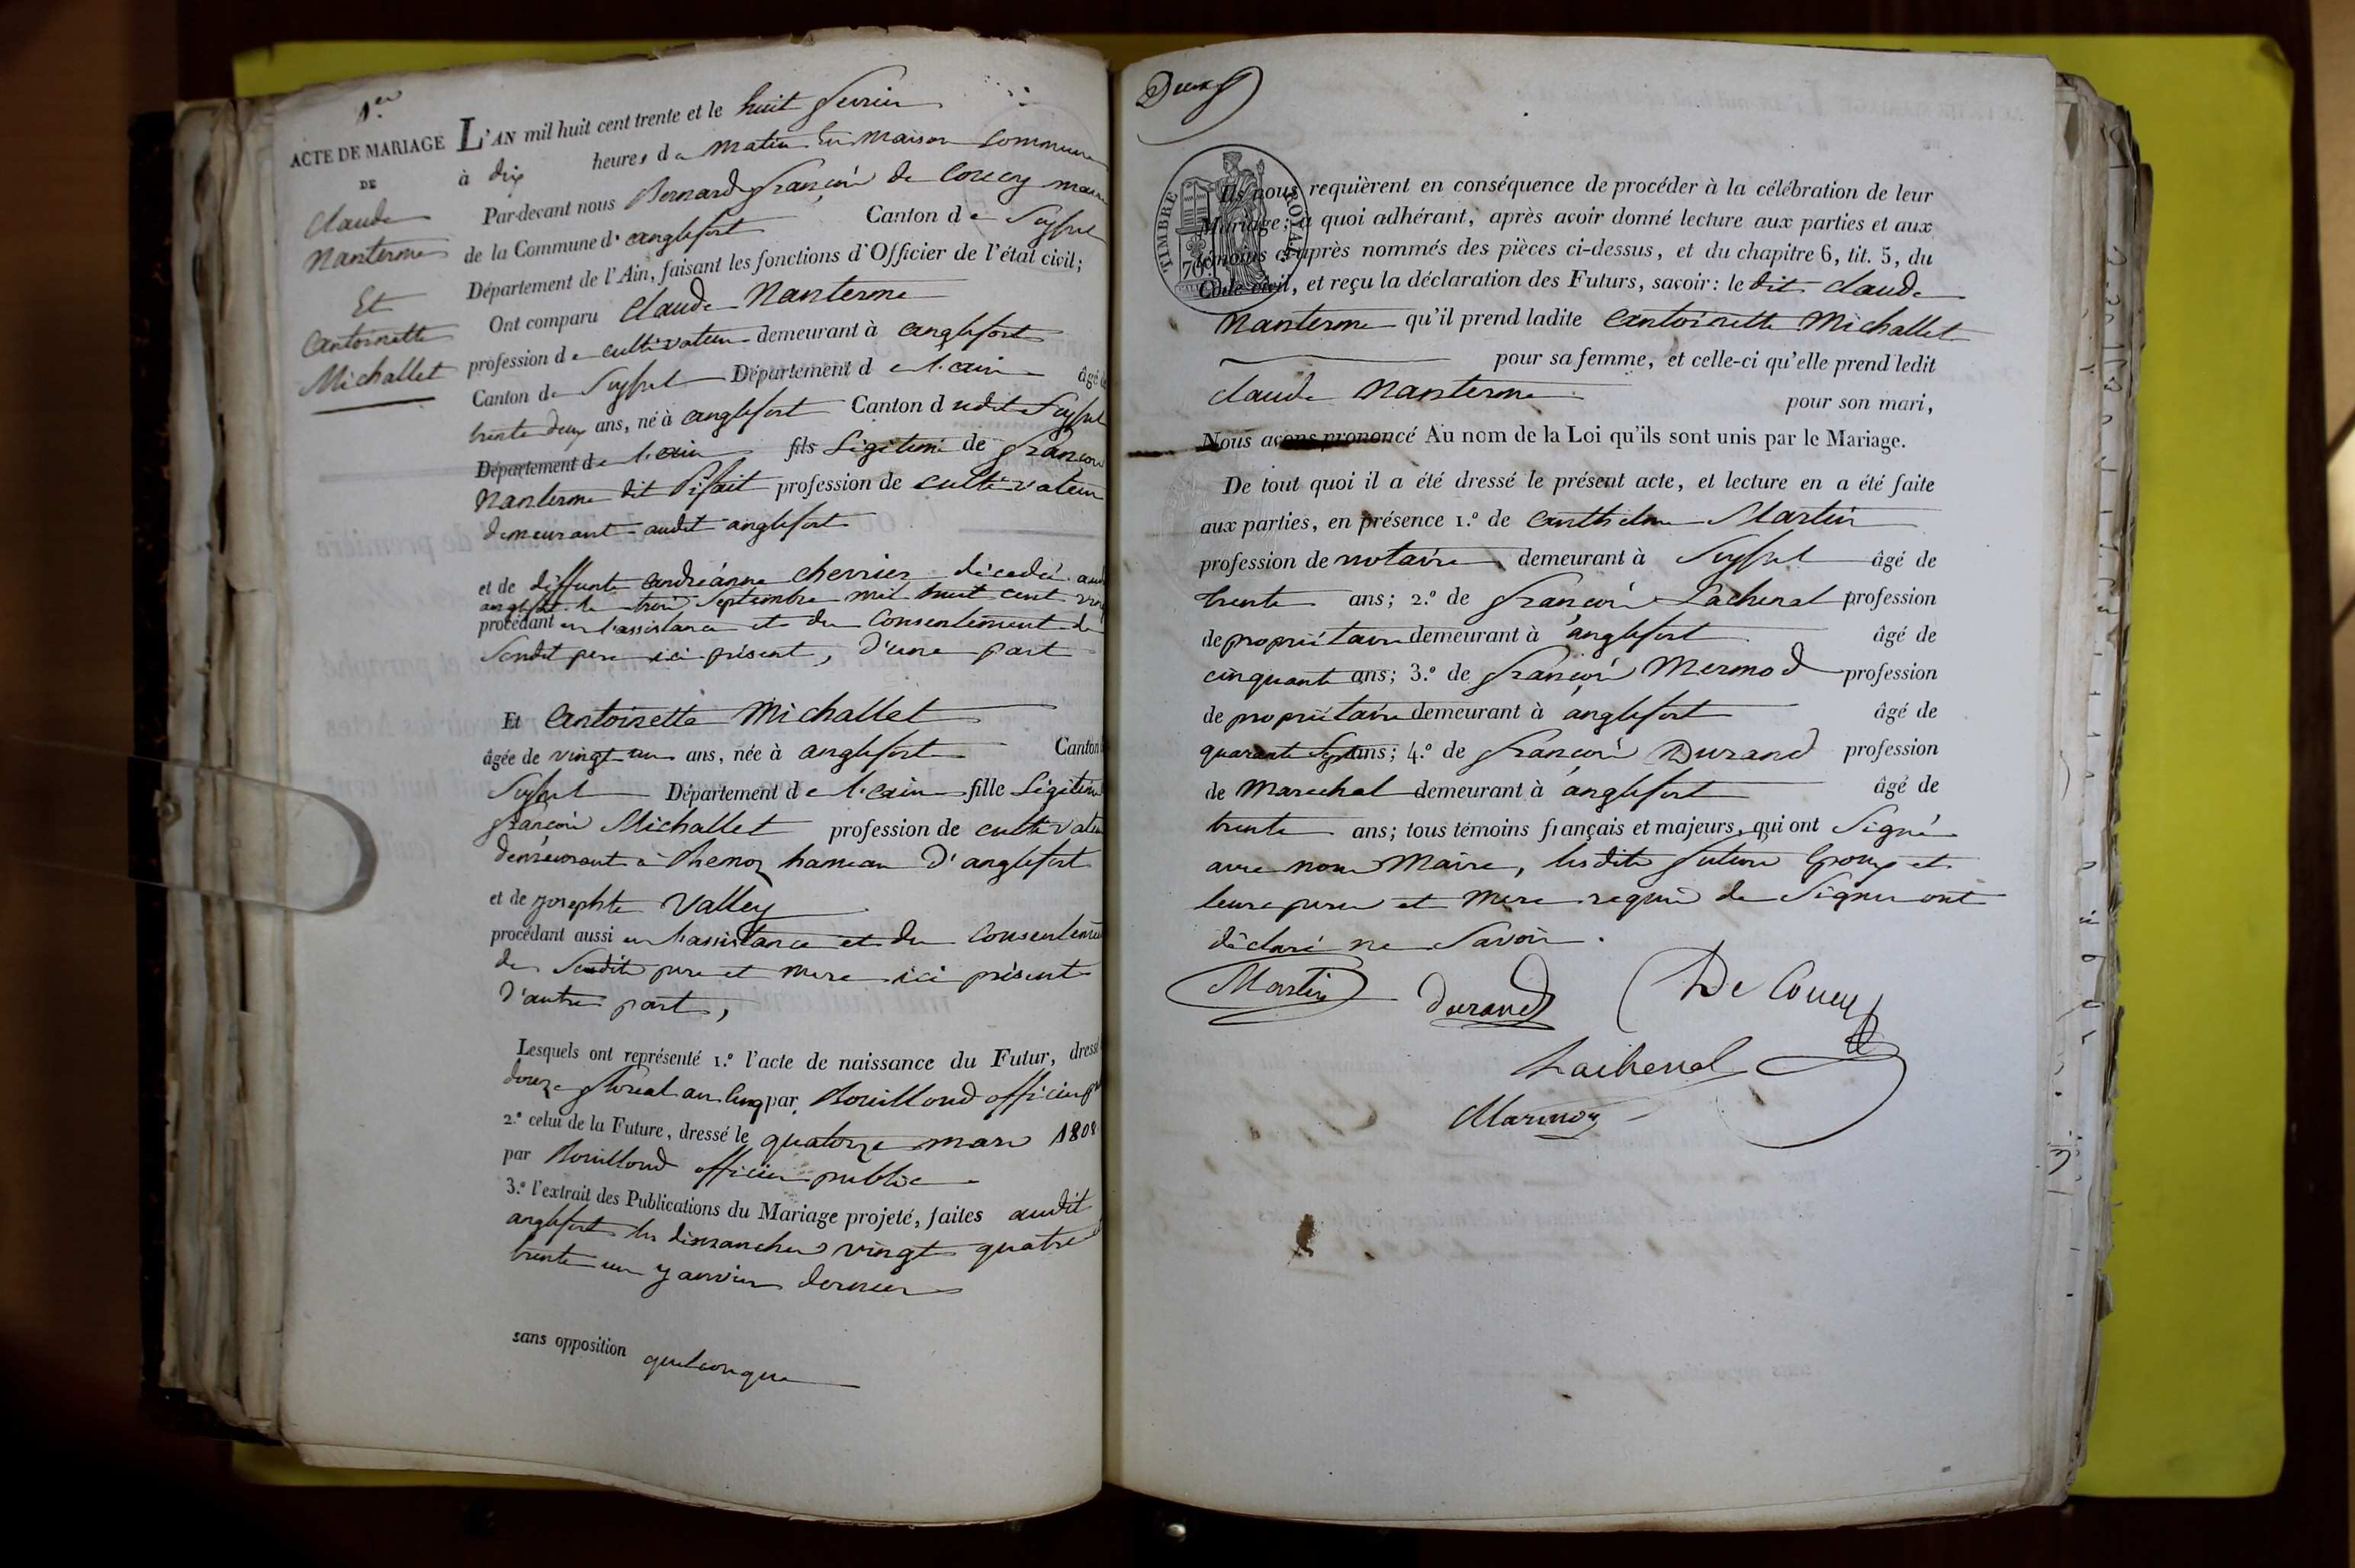 1.er
ACTE DE MARIAGE
DE
Claude
Nanterme
Et
Antoinette
Michallet
L'AN mil huit cent trente et le huit fevrier
à dix heures du matin en maison commune
Par-devant nous Bernard françois de Coucy maire
de la Commune d'anglefort Canton de Seyssel
Département de l'Ain, faisant les fonctions d'Officier de l'état civil;
Ont comparu Claude Nanterme
profession de cultivateur demeurant à anglefort
Canton de Seyssel Département de l'ain âgé de
trente deux ans, né à anglefort Canton dudit Seyssel
Département de l'ain fils légitime de françois
Nanterme dit Pifait profession de cultivateur
demeurant audit anglefort
et de deffunte andréanne chevrier décédée aud
anglefort le trois Septembre mil huit cent vingt
procédant en l'assistance et du Consentement de
Sondit pere ici présent, d'une part
Et Antoinette Michallet
âgée de vingt un ans, née à anglefort Canton
Seyssel Département de l'ain fille légitime
françois Michallet profession de cultivateur
demeurant à Rhemoz hameau d'anglefort
et de Josephte Valley
procédant aussi en l'assistance et du Consentement
de Sesdits pere et mere ici présents
d'autre part,
Lesquels ont représenté 1.º l'acte de naissance du Futur, dressé
douze floreal an cinq par Bouillond officier
2.º celui de la Future, dressé le quatorze mars 1808
par Bouillond officier public
3.º l'extrait des Publications du Mariage projeté, faites audit
anglefort les dimanches vingt quatre
trente un janvier dernier
sans opposition quelconque
TIMBRE ROYAL
Ils nous requièrent en conséquence de procéder à la célébration de leur
Mariage; à quoi adhérant, après avoir donné lecture aux parties et aux
témoins ci-après nommés des pièces ci-dessus, et du chapitre 6, tit. 5, du
Code civil, et reçu la déclaration des Futurs, savoir: le dit Claude
Nanterme qu'il prend ladite Antoinette Michallet
pour sa femme, et celle-ci qu'elle prend ledit
Claude Nanterme pour son mari,
Nous avons prononcé Au nom de la Loi qu'ils sont unis par le Mariage.
De tout quoi il a été dressé le présent acte, et lecture en a été faite
aux parties, en présence 1.º de Anthelme Martin
profession de notaire demeurant à Seyssel âgé de
trente ans; 2.º de françois Lachenal profession
de propriétaire demeurant à anglefort âgé de
cinquante ans; 3.º de françois Mermod profession
de propriétaire demeurant à anglefort âgé de
quarante Sept ans; 4.º de françois Durand profession
de Marechal demeurant à anglefort âgé de
trente ans; tous témoins français et majeurs, qui ont Signé
avec nous Maire, lesdits futurs Epoux et
leurs peres et mere requis de Signer ont
déclaré ne Savoir.
Martin
Durand
De Coucy
Lachenal